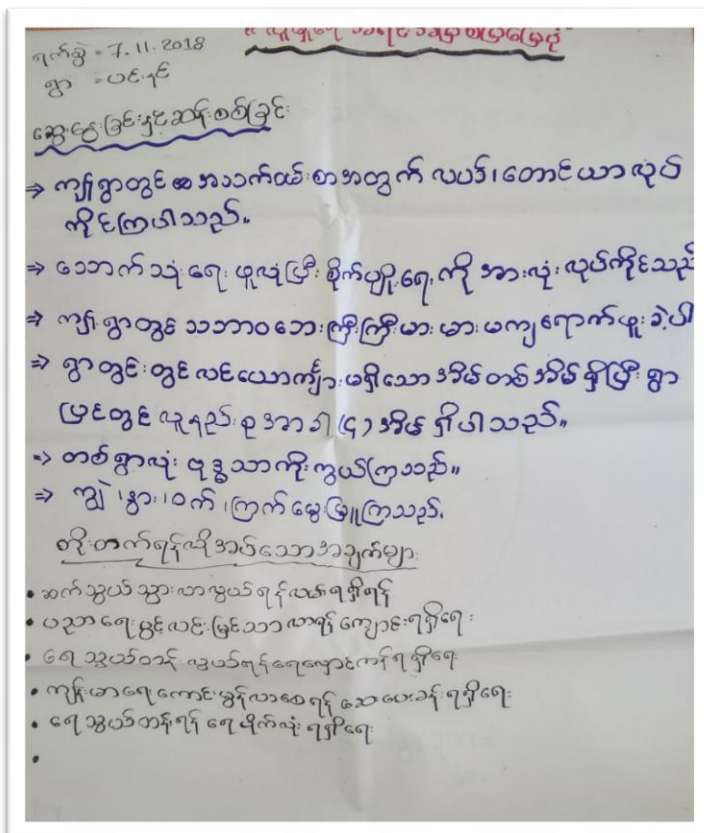 ရက်စွဲ = 7.11.2018
ရွာ = ပင်းနင်
ဆွေးနွေးခြင်းနှင့်ဆန်းစစ်ခြင်း
⇒ ကျွန်ုပ်ရွာတွင် အသက်မွေးဝမ်းစာအတွက် လယ်၊ တောင်ယာလုပ်
ကိုင်ကြပါသည်။
⇒ ဘောက်သုံးရေ ဖူလုံပြီး စိုက်ပျိုးရေး ကို အားလုံး လုပ်ကိုင်သည်
⇒ ကျွန်ုပ်ရွာတွင် သဘာဝဘေးကြီးကြီးမားမား မကျရောက်ဖူးခဲ့ပါ
⇒ ရွာတွင်းတွင် လင်ယောက်ျားမရှိသောအိမ်တစ်အိမ်ရှိပြီး ရွာ
ပြင်တွင် လူနည်းစု အာခါ (၄) အိမ် ရှိပါသည်။
⇒ တစ်ရွာလုံး ဗုဒ္ဓဘာသာကိုးကွယ်ကြသည်။
⇒ ကျွဲ၊ နွား၊ ဝက်၊ ကြက်မွေးမြူကြသည်.
တိုးတက်ရန်လိုအပ်သောအချက်များ
• ဆက်သွယ်သွားလာလွယ်ရန်လမ်းရရှိရန်
• ပညာရေးမြင့်လင်းမြင်သာလာရန်ကျောင်းရရှိရေး
• ရေသွယ်တန်းလွယ်ရန်ရေလှောင်ကန်ရရှိရေး
• ကျန်းမာရေးကောင်းမွန်လာစေရန် ဆေးပေးခန်းရရှိရေး
• ရေသွယ်တန်းရန် ရေပိုက်လုံး ရရှိရေး